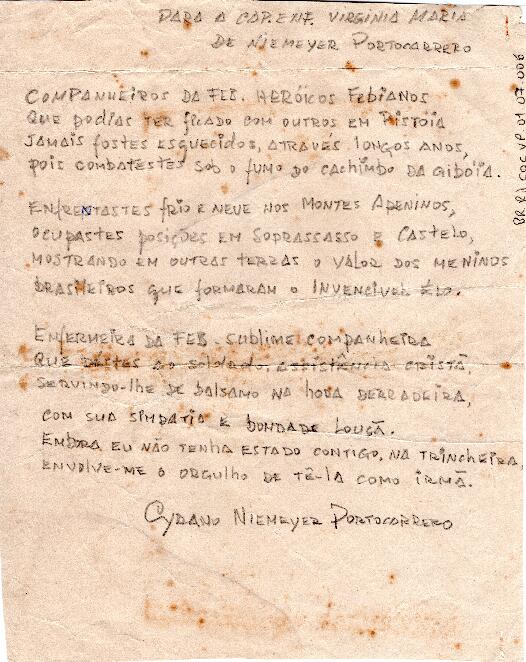 PARA A CAP. ENF. VIRGINIA MARIA
DE NIEMEYER PORTOCARRERO
COMPANHEIROS DA FEB. HERÓICOS FEBIANOS
QUE PODIAS TER FICADO COM OUTROS EM PISTÓIA
JAMAIS FOSTES ESQUECIDOS, ATRAVÉS LONGOS ANOS,
POIS COMBATESTES SOB O FUMO DO CACHIMBO DA GIBÓIA.
ENFRENTASTES FRIO E NEVE NOS MONTES APENINOS,
OCUPASTES POSIÇÕES EM SOPRASSASSO E CASTELO,
MOSTRANDO EM OUTRAS TERRAS O VALOR DOS MENINOS
BRASILEIROS QUE FORMARAM O INVENCÍVEL ÉLO.
ENFERMEIRA DA FEB. SUBLIME COMPANHEIRA
QUE DESTES AO SOLDADO, ASSISTÊNCIA CRISTÃ,
SERVINDO-LHE DE BALSAMO NA HORA DERRADEIRA,
COM SUA SIMPATIA E BONDADE LOUÇÃ.
EMBORA EU NÃO TENHA ESTADO CONTIGO, NA TRINCHEIRA,
ENVOLVE-ME O ORGULHO DE TÊ-LA COMO IRMÃ.
CYRANO NIEMEYER PORTOCARRERO
BR RJ COC VP 01 07.006